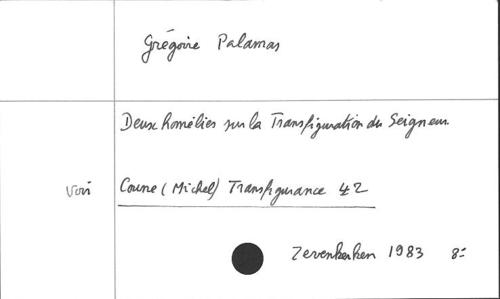 Grégoire Palamas
Deux homélies sur la Transfiguration du Seigneur
voir Coune (Michel) Transfigurance 42
Zevenkerken 1983 8°